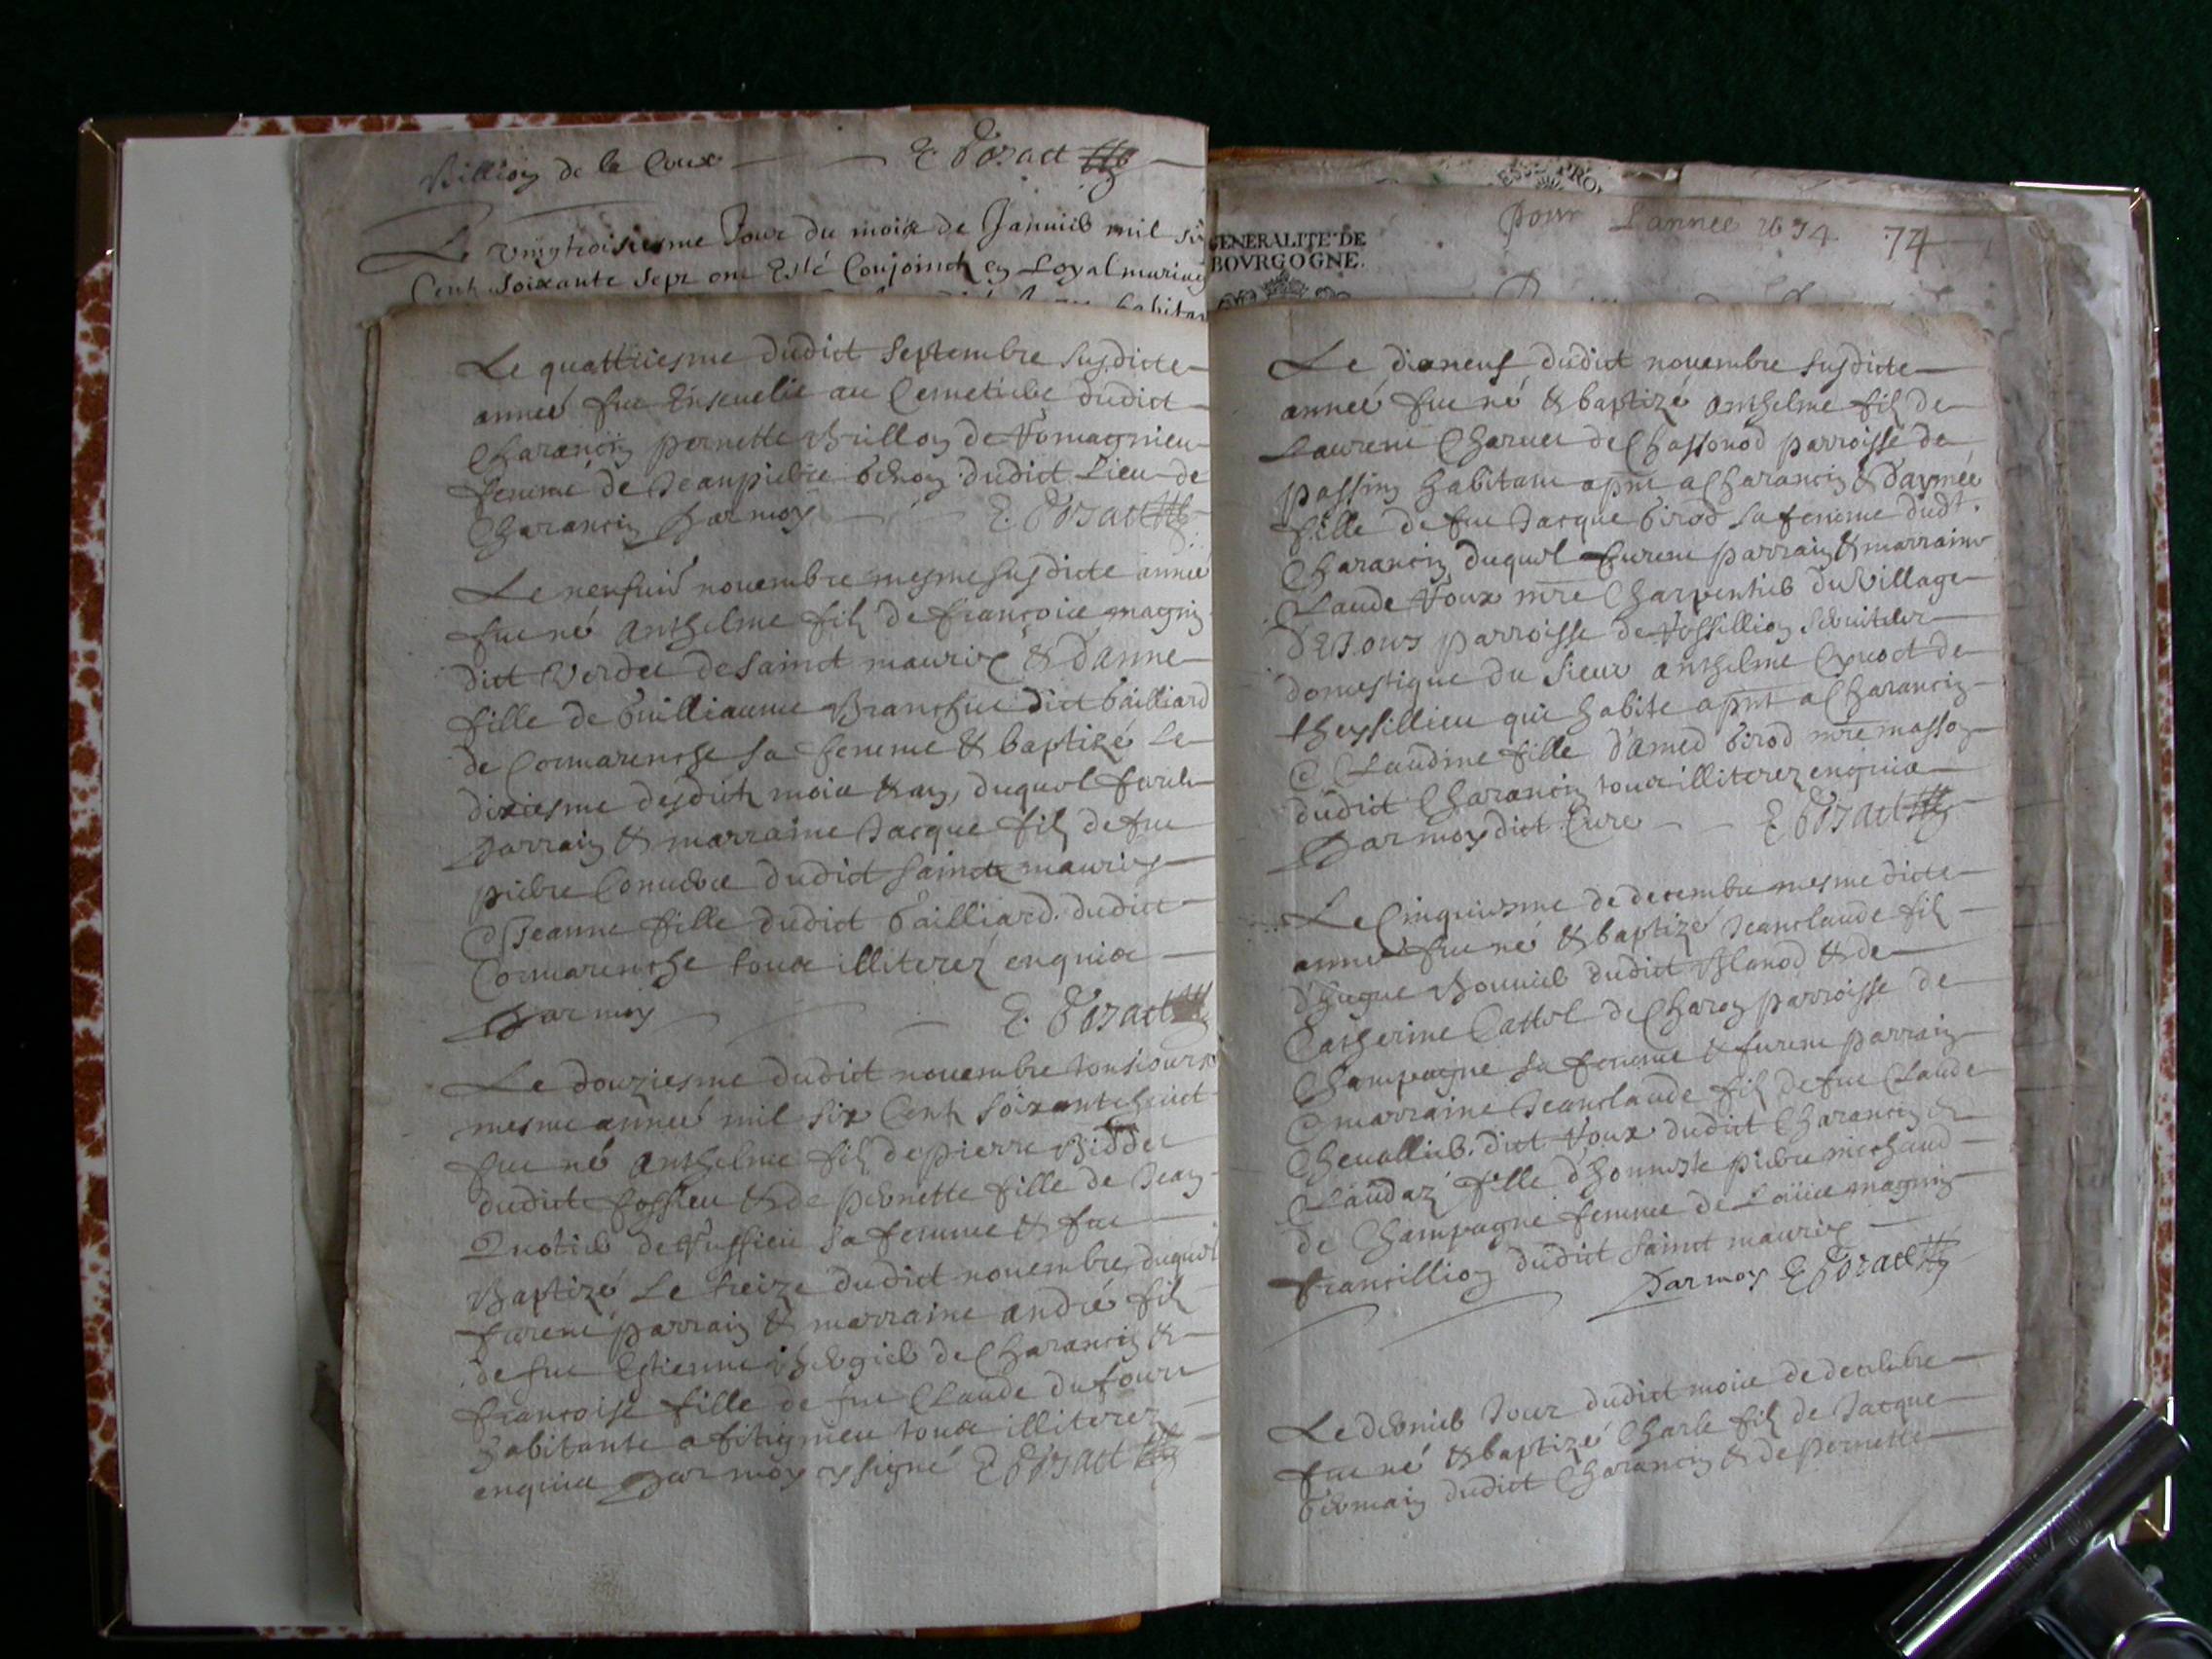 de la Coux
Le vingtroisiesme Jour du moix de Janvier mil si
Cent soixante sept ont Esté Conjoinct en Loyal mariag
habitan
Le quattriesme dudict Septembre susdicte
année fut Ensevelie au Cemetiere dudict
Charancin pernette Brillon de
femme de Jeanpierre dudict Lieu de
Charancin Par moy
Le neufvie novembre mesme susdicte année
fut né Anthelme filz de françois magnin
dict Verdet de Sainct maurix & D'anne
fille de Guilliaume dict Gailliard
de Cormarenche sa femme & baptizé Le
dixiesme desdictz moix & an, duquel furent
Parrain & marraine Jacque filz de fut
pierre dudict Sainct maurix
& Jeanne fille dudict Gailliard dudict
Cormarenche toux illiterez enquix
Par moy
Le douziesme dudict novembre tousiours
mesme année mil six Cent soixantehuict
fut né Anthelme filz de pierre Biddet
dudict fossieu & de pernette fille de Jean
de sa femme & fut
Baptizé Le treize dudict novembre, duquel
furent parrain & marraine andré filz
de fut Estienne de Charancin &
françoise fille de fut Claude dufour
habitante a fitignieu toux illiterez
enquix Par moy signé
GENERALITE DE
BOVRGOGNE.
pour L'année 1674
74
Le dixneuf dudict novembre susdicte
année fut né & baptizé Anthelme filz de
Laurent Charvet de Chassonod parroisse de
passin habitant apnt a Charancin & D'aymée
fille de fut Jacque Girod sa femme dudt.
Charancin duquel furent parrain & marraine
Claude Roux mre Charpentier du Village
parroisse de serviteur
domestique du sieur Anthelme de
theysillieu qui habite apnt a Charancin
& Claudine fille d'amed Girod mre masson
dudict Charancin toux illiterez enquix
Par moy dict Curé
Le Cinquiesme de decembre mesme dicte
année fut né & baptizé Jeanclaude filz
d'hugue Bonnier dudict Blanod & de
Catherine de Charon parroisse de
Champagne sa femme & furent parrain
& marraine Jeanclaude filz de fut Claude
Chevallier dict Roux dudict Charancin &
Claudaz fille d'honneste pierre michaud
de Champagne femme de Loüix magnin
francillion dudict Sainct maurix
Par moy
Le dernier Jour dudict moix de decembre
fut né & baptizé Charle filz de Jacque
Germain dudict Charancin & de pernette